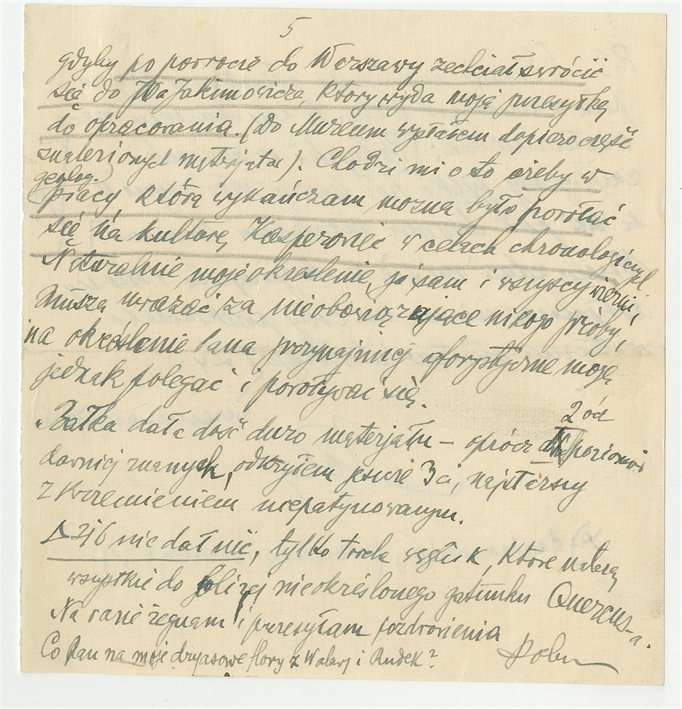 5
gdyby po powrocie do Warszawy zechciał zwrócić
się do Pa Jakimowicza, który wyda moją przesyłkę
do opracowania. (Do Muzeum wysłałem dopiero część
znalezionych materjałów). Chodzi mi o to żeby w
(geolog.)
pracy którą wykańczam można było powołać
się na kulturę, Kasperowiec w celach chronologicznych.
Naturalnie moje określenie, ja sam i wszyscy inni
muszą uważać za nieobowiązujące nikogo próby,
na określenie Pana przynajmniej aforystyczne mogą
jednak polegać i powoływać się.
Bałka dała dość dużo materjału – oprócz 2 ód
poziomów
dawniej znanych, odkryłem jeszcze 3ci, najstarszy
z krzemieniem niepatynowanym.
216 nie dał nic, tylko trochę węgli, które należą
wszystkie do bliżej nieokreślonego gatunku Quercus-a.
Na razie żegnam i przesyłam pozdrowienia
Co Pan na moje dryasowe flory z Walawy i Rudek?